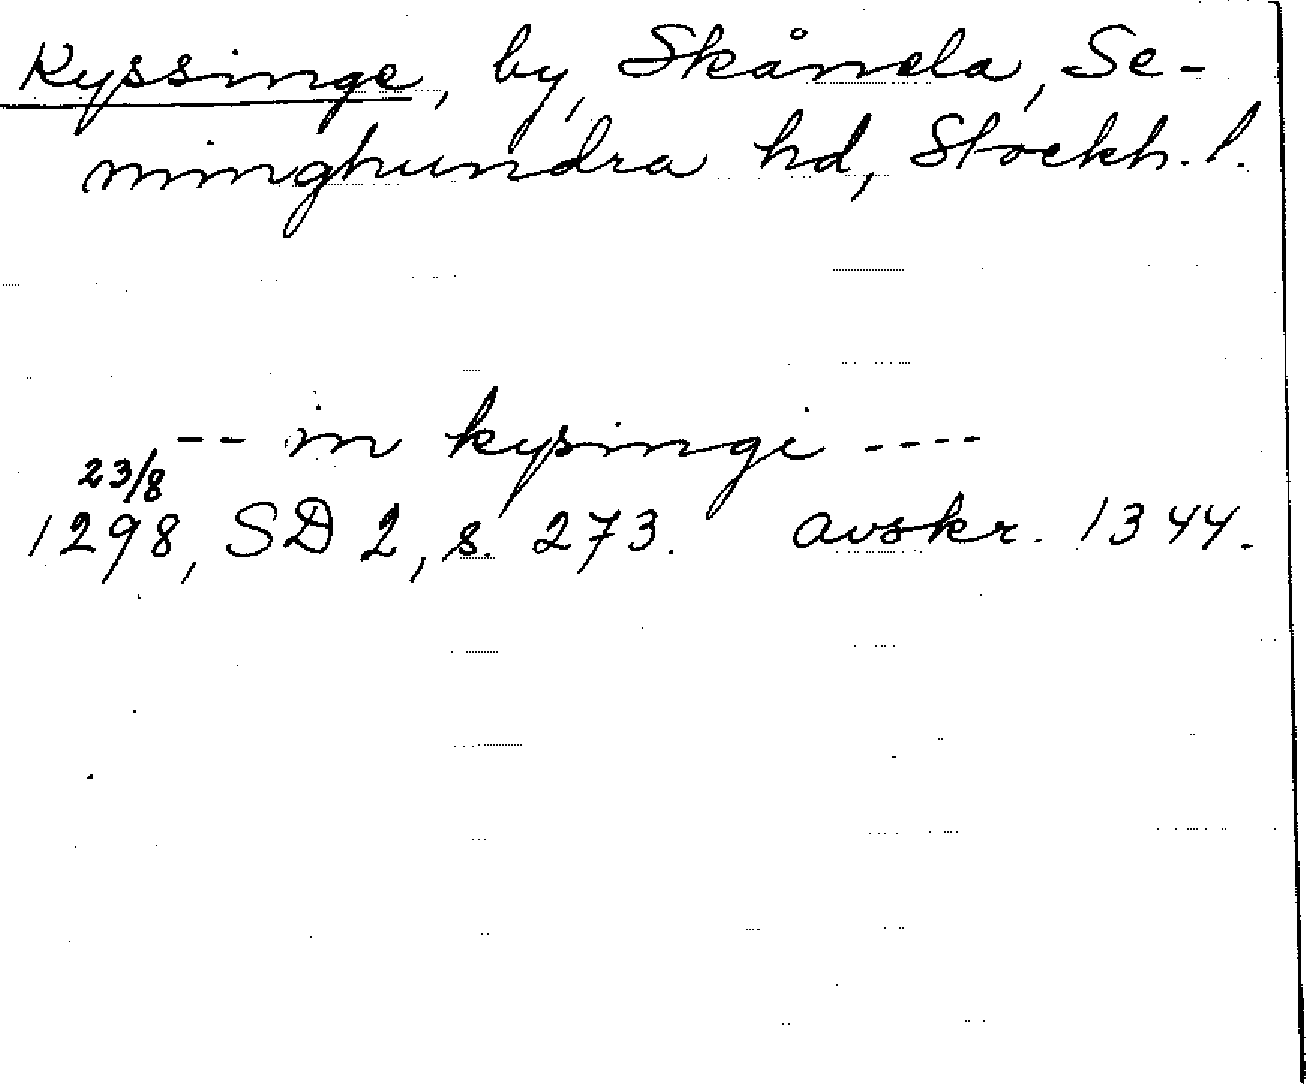 Kyssinge, by, Skånela, Se-
minghundra hd, Stockh. l.
-- in kysingi ----
23/8
1298, SD 2, s. 273. avskr. 1344.